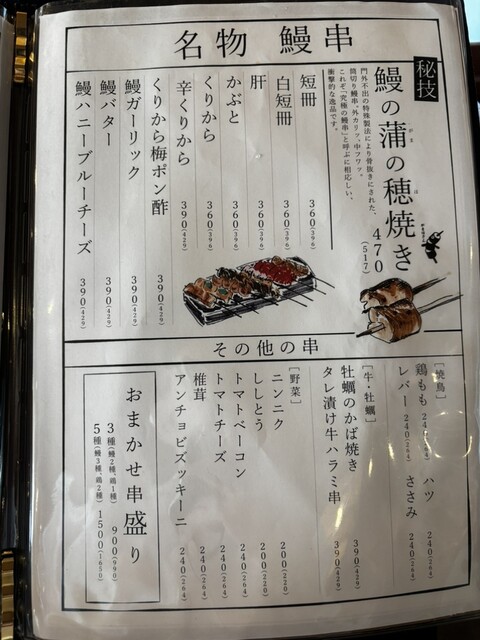 名物 鰻串
秘技
鰻の蒲の穂焼き 470(517)
がま ほ
門外不出の特殊製法により骨抜きにされた、
筒切り鰻串。外カリッ、中フワッ。
これぞ「究極の鰻串」と呼ぶに相応しい、
衝撃的な逸品です。
短冊 360(396)
白短冊 360(396)
肝 360(396)
かぶと 360(396)
くりから 360(396)
辛くりから 390(429)
くりから梅ポン酢 390(429)
鰻ガーリック 390(429)
鰻バター 390(429)
鰻ハニーブルーチーズ 390(429)
その他の串
[焼鳥]
鶏もも 240(264) ハツ 240(264)
レバー 240(264) ささみ 240(264)
[牛・牡蠣]
牡蠣のかば焼き 390(429)
タレ漬け牛ハラミ串 390(429)
[野菜]
ニンニク 200(220)
ししとう 200(220)
トマトベーコン 240(264)
トマトチーズ 240(264)
椎茸 240(264)
アンチョビズッキーニ 240(264)
おまかせ串盛り
3種(鰻2種、鶏1種) 900(990)
5種(鰻3種、鶏2種) 1500(1650)